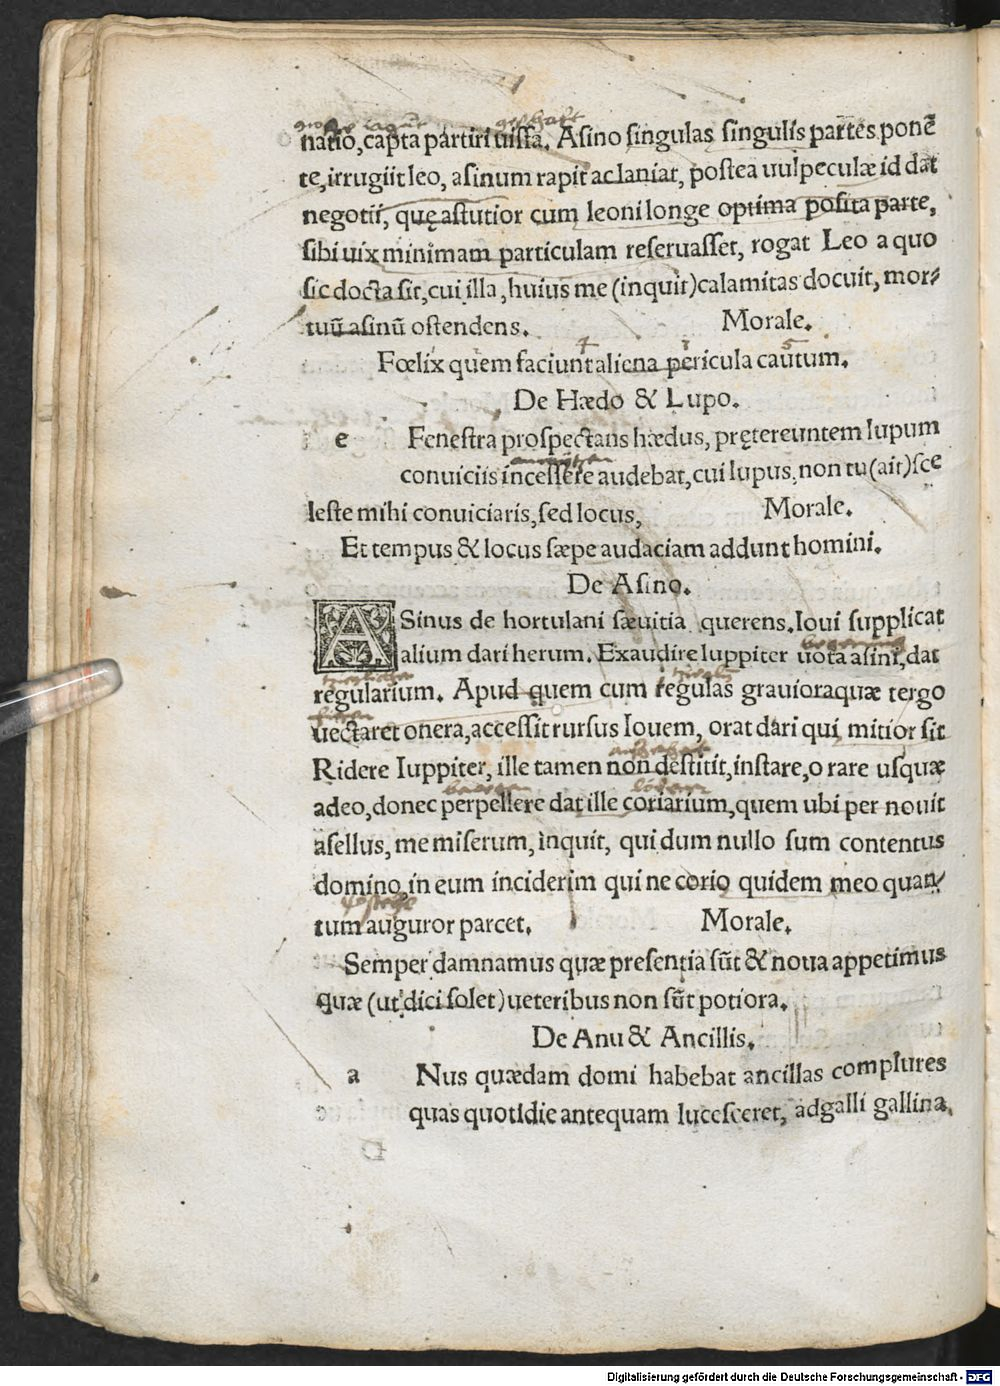 natio, capta partiri iussa. Asino singulas singulis partes ponē
te, irrugiit leo, asinum rapit ac laniat, postea uulpeculæ id dat
negotii, quę astutior cum leoni longe optima posita parte,
sibi uix minimam particulam reseruasset, rogat Leo a quo
sic docta sit, cui illa, huius me (inquit) calamitas docuit, mor⸗
tuū asinū ostendens. Morale.
Fœlix quem faciunt aliena pericula cautum.
De Hædo & Lupo.
e Fenestra prospectans hædus, prętereuntem lupum
conuiciis incessere audebat, cui lupus, non tu (ait) sce
leste mihi conuiciaris, sed locus, Morale.
Et tempus & locus sæpe audaciam addunt homini.
De Asino.
ASinus de hortulani sæuitia querens. Ioui supplicat
alium dari herum. Exaudire Iuppiter uota asini, dat
regularium. Apud quem cum regulas grauioraquæ tergo
uectaret onera, accessit rursus Iouem, orat dari qui mitior sit
Ridere Iuppiter, ille tamen non destitit, instare, o rare usquæ
adeo, donec perpellere dat ille coriarium, quem ubi per nouit
asellus, me miserum, inquit, qui dum nullo sum contentus
domino, in eum inciderim qui ne corio quidem meo quan⸗
tum auguror parcet. Morale.
Semper damnamus quæ presentia sūt & noua appetimus
quæ (ut dici solet) ueteribus non sūt potiora.
De Anu & Ancillis.
a Nus quædam domi habebat ancillas complures
quas quotidie antequam lucesceret, ad galli gallina.
Digitalisierung gefördert durch die Deutsche Forschungsgemeinschaft - DFG